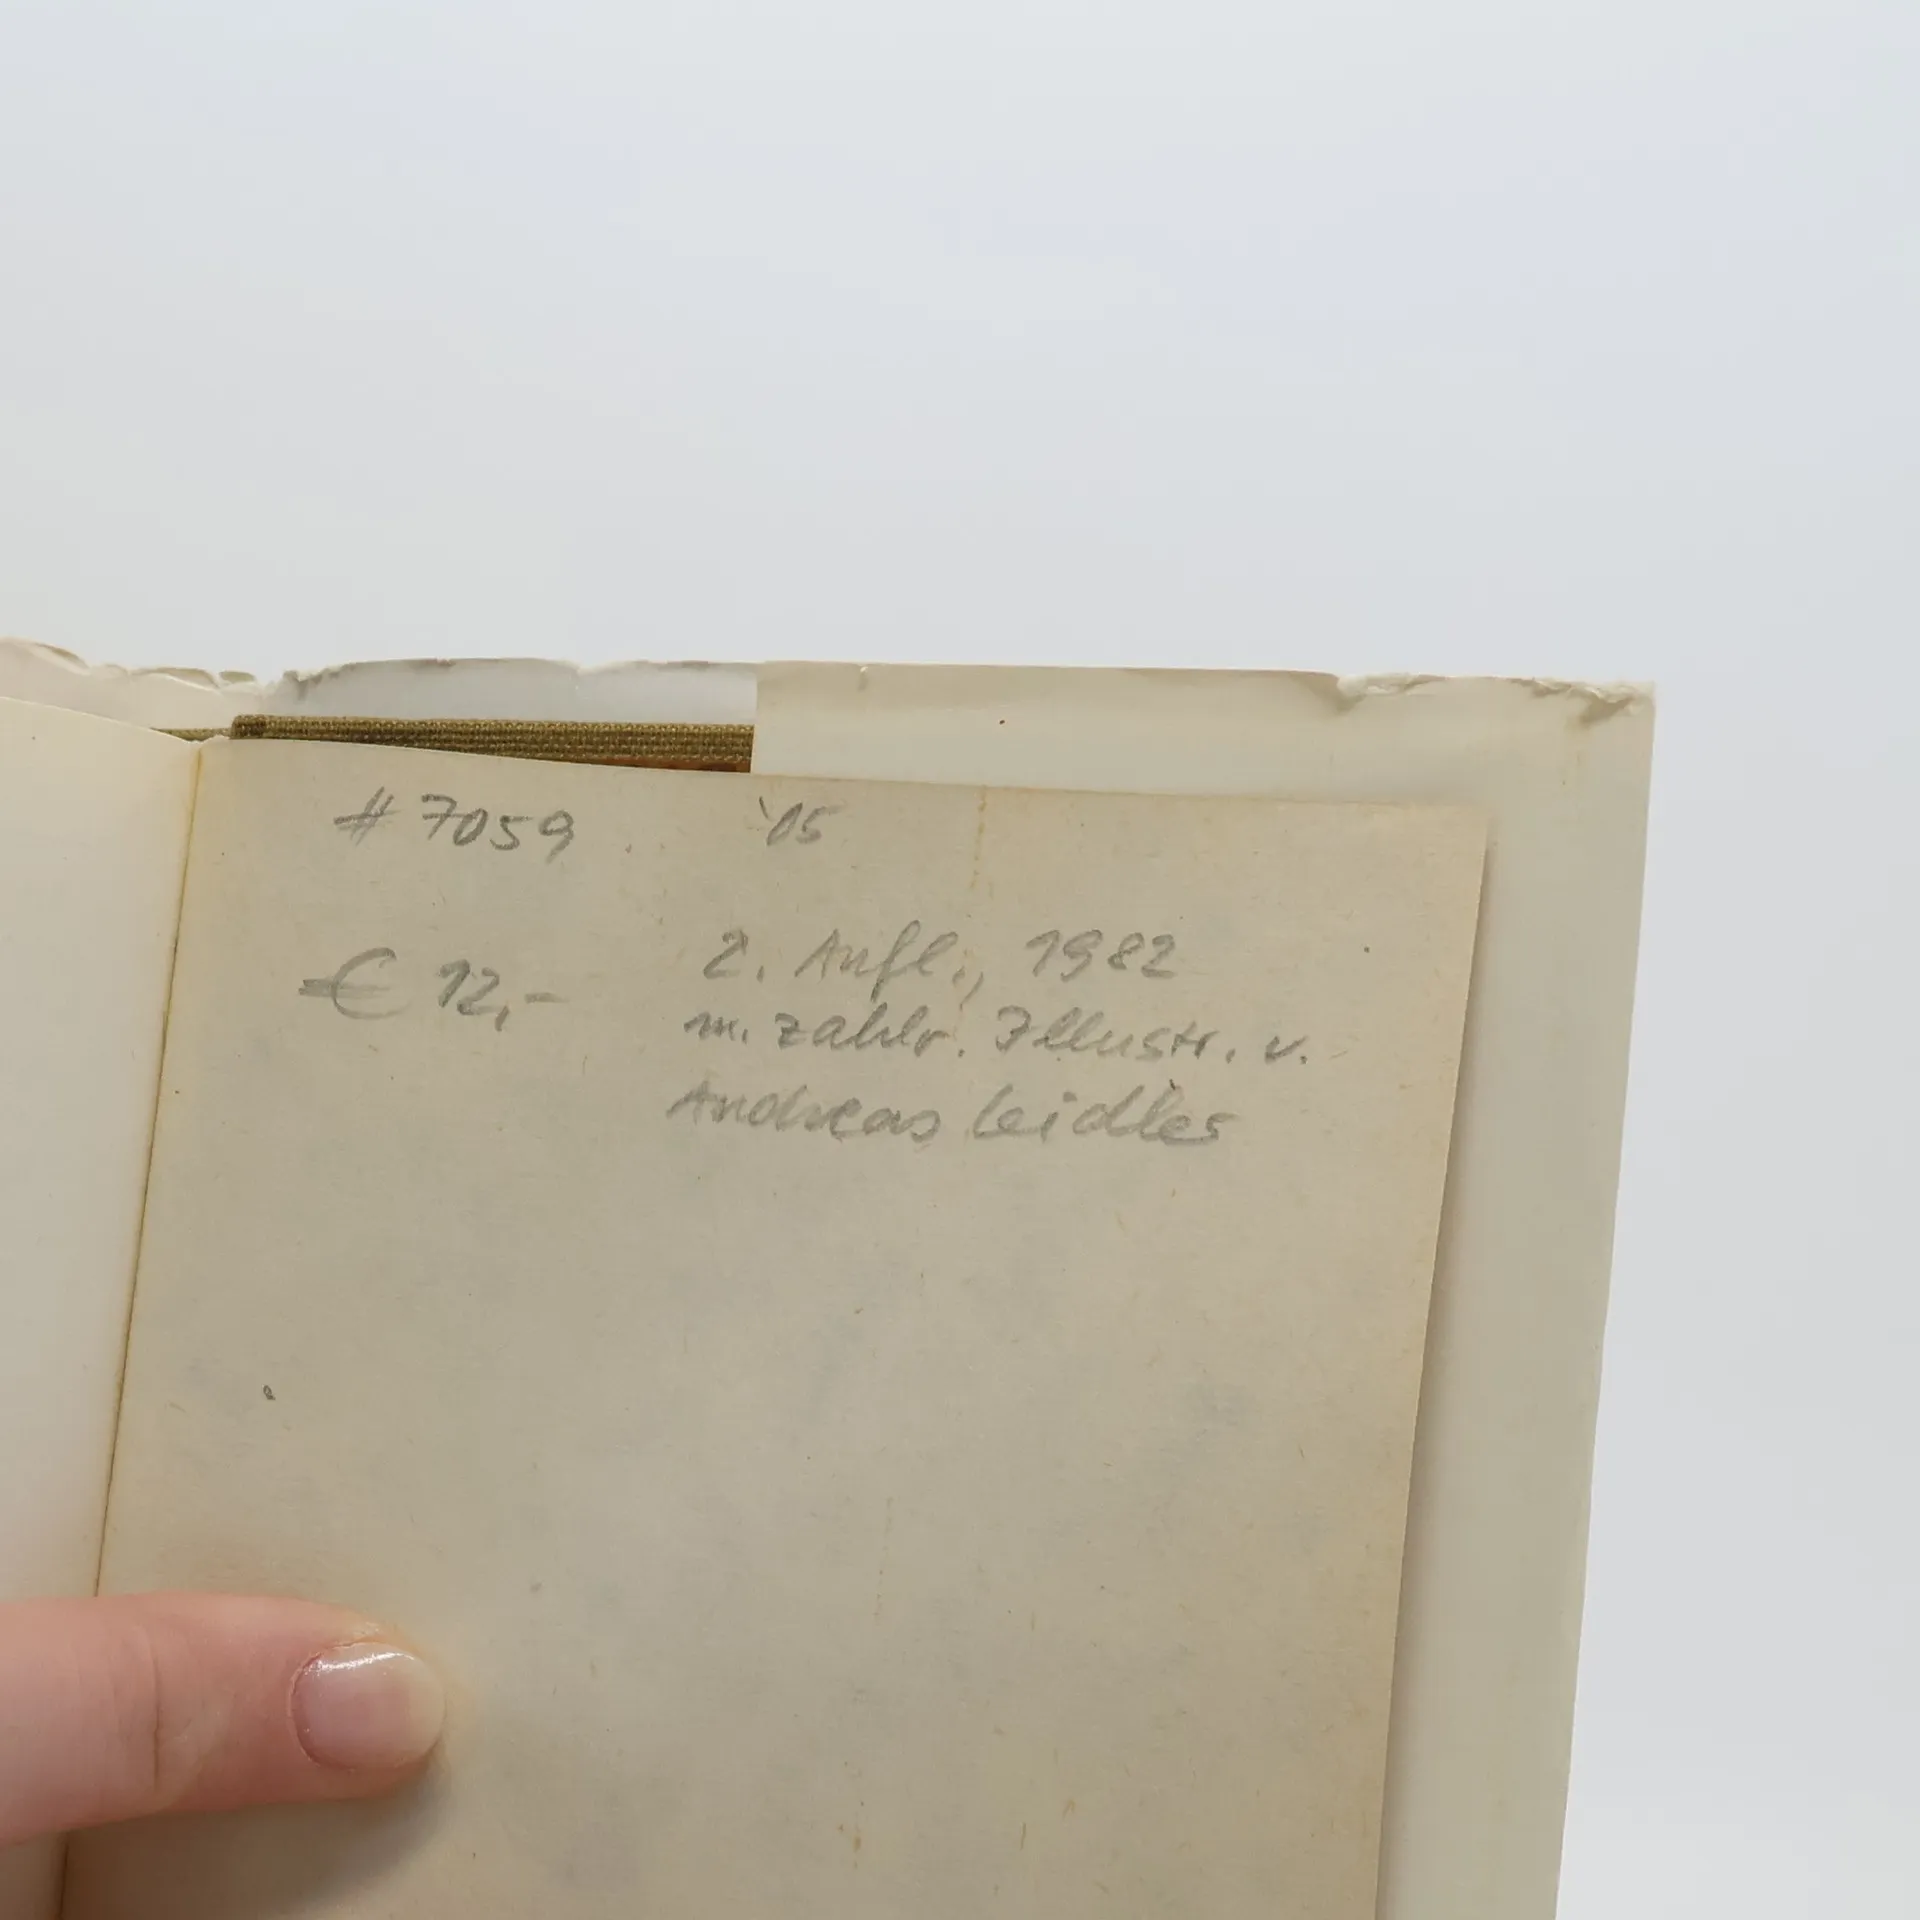 # 7059 '05
€ 12,-
2. Aufl., 1982
m. zahlr. Illustr. v.
Andreas Leidler